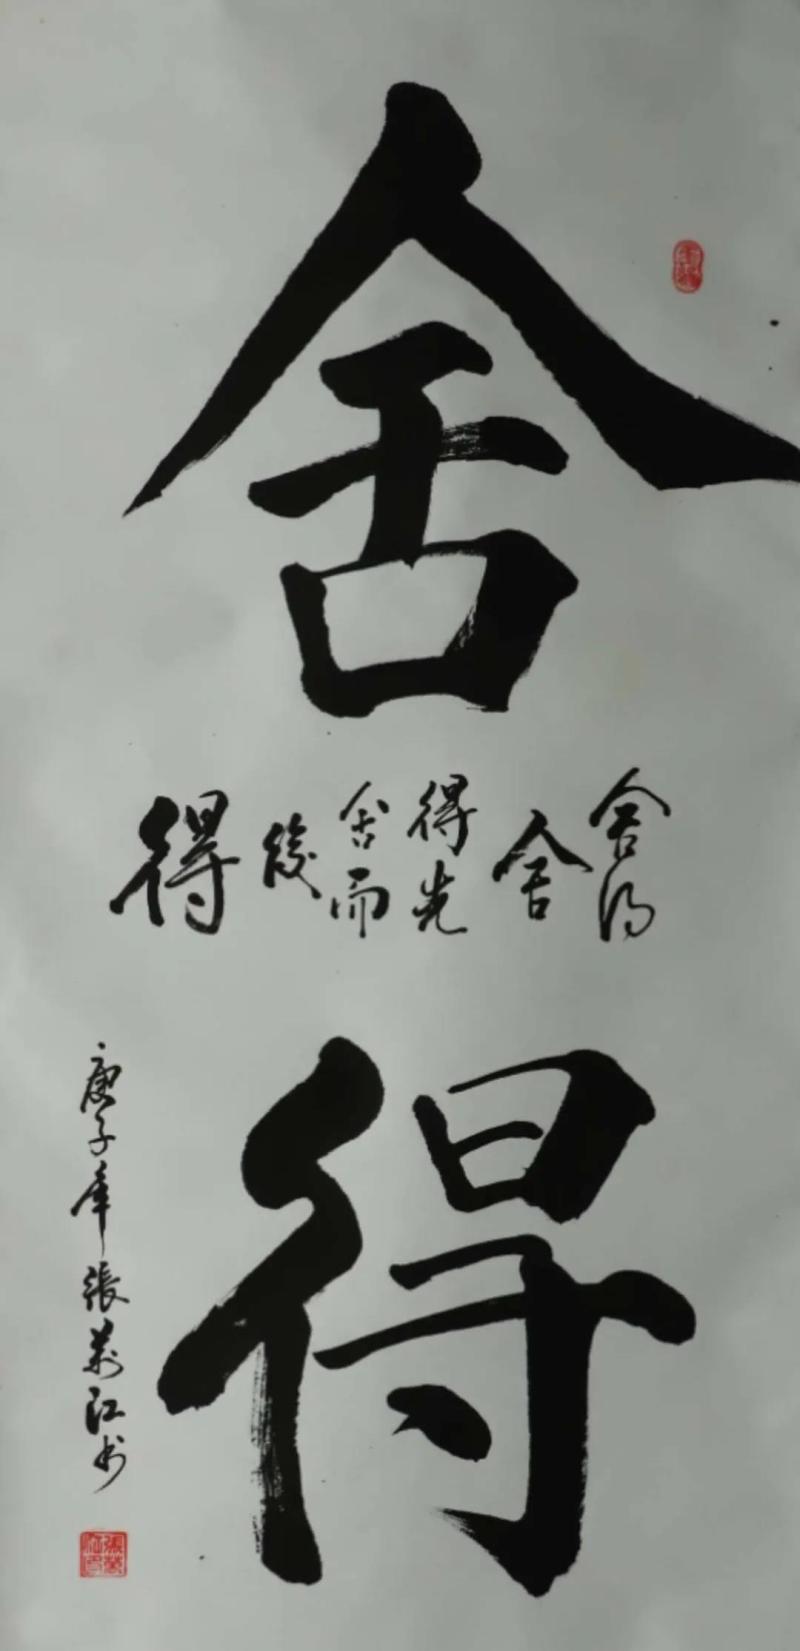 舍
舍得
舍
得先
舍而
後
得
得
庚子年張萬江书